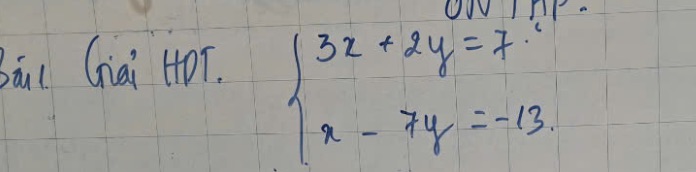 ÔN TẬP.
Bài 1. Giải HPT. { 3x + 2y = 7.
x - 7y = -13.